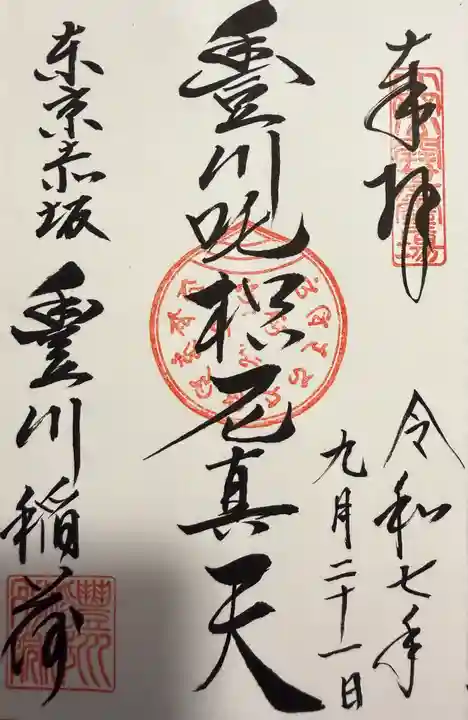 奉拝
令和七年
九月二十一日
豊川吒枳尼真天
东京赤坂
豊川稲荷